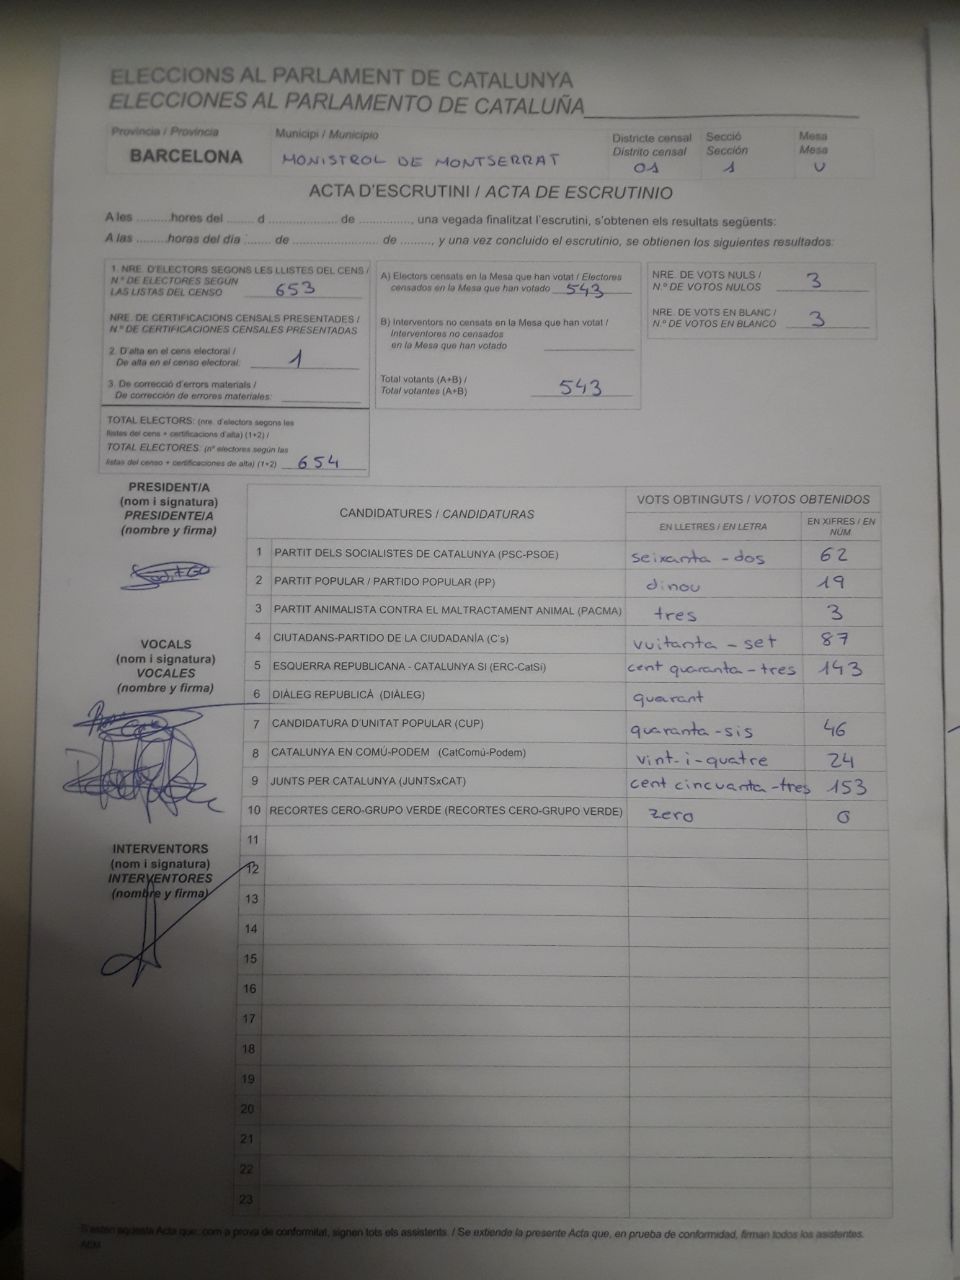 ELECCIONS AL PARLAMENT DE CATALUNYA
ELECCIONES AL PARLAMENTO DE CATALUÑA
Província / Provincia Municipi / Municipio Districte censal Secció Mesa
Distrito censal Sección Mesa
BARCELONA MONISTROL DE MONTSERRAT 01 1 U
ACTA D'ESCRUTINI / ACTA DE ESCRUTINIO
A les ..........hores del ........ d .................... de ..............., una vegada finalitzat l'escrutini, s'obtenen els resultats següents:
A las ..........horas del día ........ de ......................... de ........., y una vez concluido el escrutinio, se obtienen los siguientes resultados:
1. NRE. D'ELECTORS SEGONS LES LLISTES DEL CENS /
N.º DE ELECTORES SEGÚN
LAS LISTAS DEL CENSO 653
NRE. DE CERTIFICACIONS CENSALS PRESENTADES /
N.º DE CERTIFICACIONES CENSALES PRESENTADAS
2. D'alta en el cens electoral /
De alta en el censo electoral: 1
3. De correcció d'errors materials /
De corrección de errores materiales:
TOTAL ELECTORS: (nre. d'electors segons les
llistes del cens + certificacions d'alta) (1+2) /
TOTAL ELECTORES: (nº electores según las
listas del censo + certificaciones de alta) (1+2) 654
A) Electors censats en la Mesa que han votat / Electores
censados en la Mesa que han votado 543
B) Interventors no censats en la Mesa que han votat /
Interventores no censados
en la Mesa que han votado
Total votants (A+B) /
Total votantes (A+B) 543
NRE. DE VOTS NULS /
N.º DE VOTOS NULOS 3
NRE. DE VOTS EN BLANC /
N.º DE VOTOS EN BLANCO 3
PRESIDENT/A
(nom i signatura)
PRESIDENTE/A
(nombre y firma)
VOCALS
(nom i signatura)
VOCALES
(nombre y firma)
INTERVENTORS
(nom i signatura)
INTERVENTORES
(nombre y firma)
CANDIDATURES / CANDIDATURAS VOTS OBTINGUTS / VOTOS OBTENIDOS
EN LLETRES / EN LETRA EN XIFRES / EN NÚM.
1 PARTIT DELS SOCIALISTES DE CATALUNYA (PSC-PSOE) seixanta-dos 62
2 PARTIT POPULAR / PARTIDO POPULAR (PP) dinou 19
3 PARTIT ANIMALISTA CONTRA EL MALTRACTAMENT ANIMAL (PACMA) tres 3
4 CIUTADANS-PARTIDO DE LA CIUDADANÍA (C's) vuitanta-set 87
5 ESQUERRA REPUBLICANA - CATALUNYA SI (ERC-CatSí) cent quaranta-tres 143
6 DIÀLEG REPUBLICÀ (DIÀLEG) quarant
7 CANDIDATURA D'UNITAT POPULAR (CUP) quaranta-sis 46
8 CATALUNYA EN COMÚ-PODEM (CatComú-Podem) vint-i-quatre 24
9 JUNTS PER CATALUNYA (JUNTSxCAT) cent cincuanta-tres 153
10 RECORTES CERO-GRUPO VERDE (RECORTES CERO-GRUPO VERDE) zero 0
11
12
13
14
15
16
17
18
19
20
21
22
23
S'estén aquesta Acta que, com a prova de conformitat, signen tots els assistents. / Se extiende la presente Acta que, en prueba de conformidad, firman todos los asistentes.